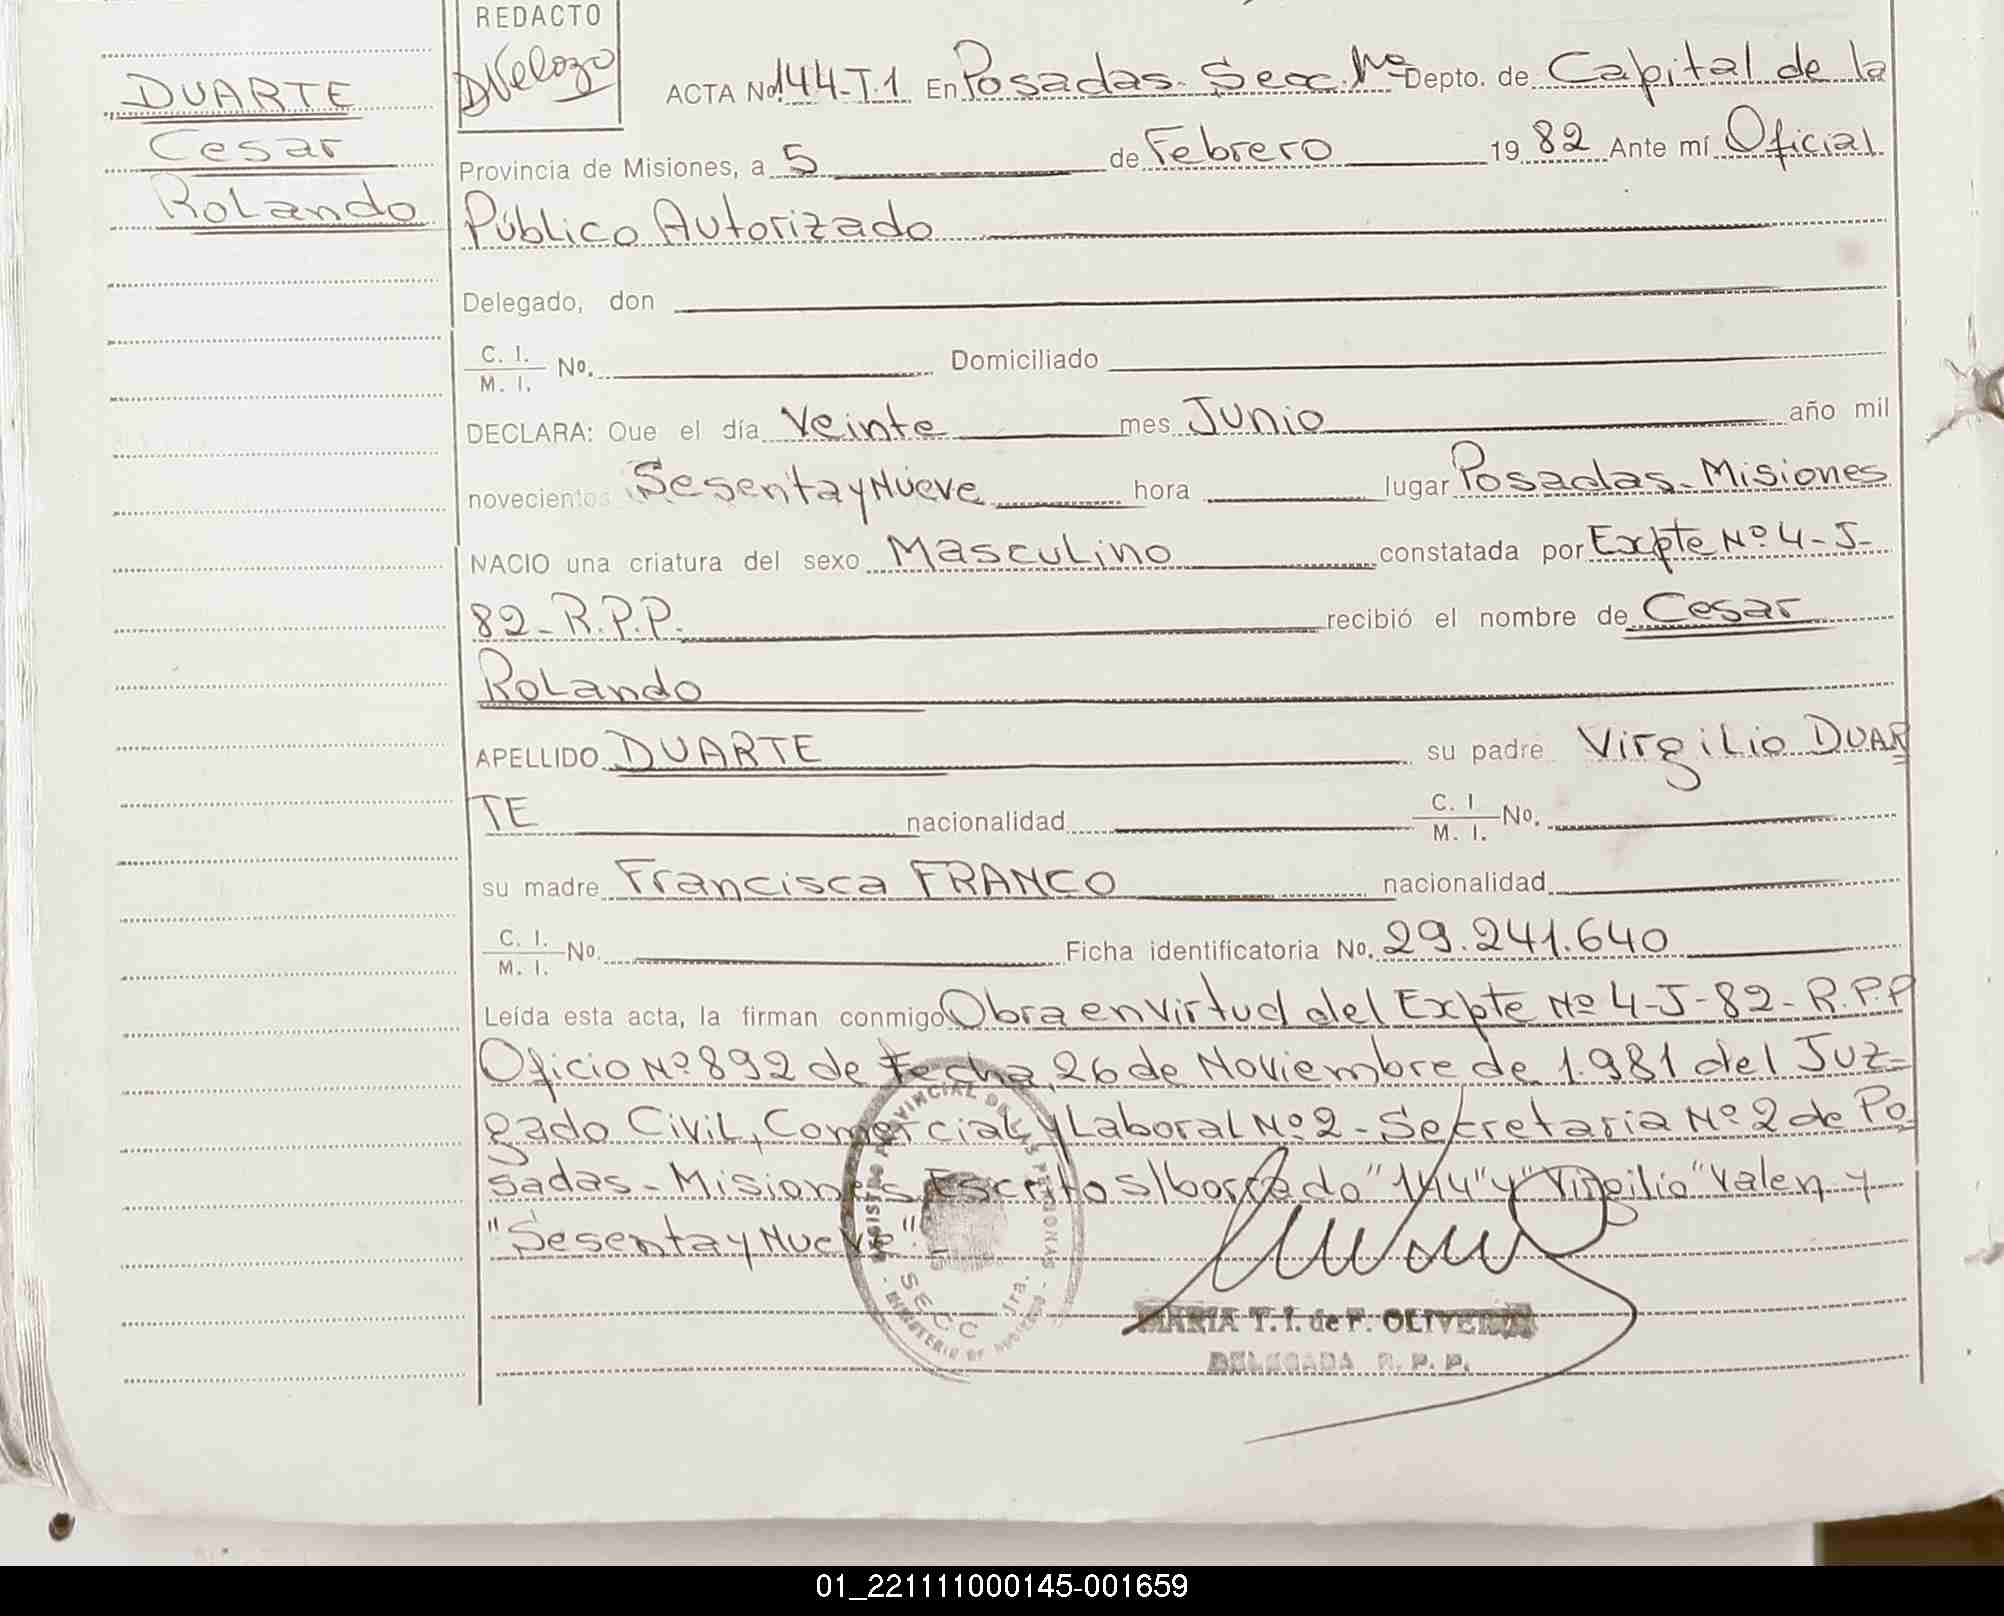 REDACTO
DVelozo
DUARTE
Cesar
Rolando
ACTA No. 144-T.1 En Posadas. Secc. 1ra Depto. de Capital de la
Provincia de Misiones, a 5 de Febrero 1982 Ante mí Oficial
Público Autorizado
Delegado, don
C. I. / M. I. No. Domiciliado
DECLARA: Que el día Veinte mes Junio año mil
novecientos Sesenta y Nueve hora lugar Posadas - Misiones
NACIO una criatura del sexo Masculino constatada por Expte Nº 4-J-
82-R.P.P. recibió el nombre de Cesar
Rolando
APELLIDO DUARTE su padre Virgilio DUAR
TE nacionalidad C. I. / M. I. No.
su madre Francisca FRANCO nacionalidad
C. I. / M. I. No. Ficha identificatoria No. 29.241.640
Leída esta acta, la firman conmigo Obra en virtud del Expte Nº 4-J-82-R.P.P
Oficio Nº 892 de fecha, 26 de Noviembre de 1.981 del Juz-
gado Civil, Comercial y Laboral Nº 2 - Secretaria Nº 2 de Po
sadas - Misiones. Escritos s/borrado "144" y "Virgilio" Valen y
"Sesenta y Nueve".-
REGISTRO PROVINCIAL DE LAS PERSONAS
SECC 1ra.
MINISTERIO DE GOBIERNO
MARIA T. I. de F. OLIVEIRA
DELEGADA R. P. P.
01_221111000145-001659